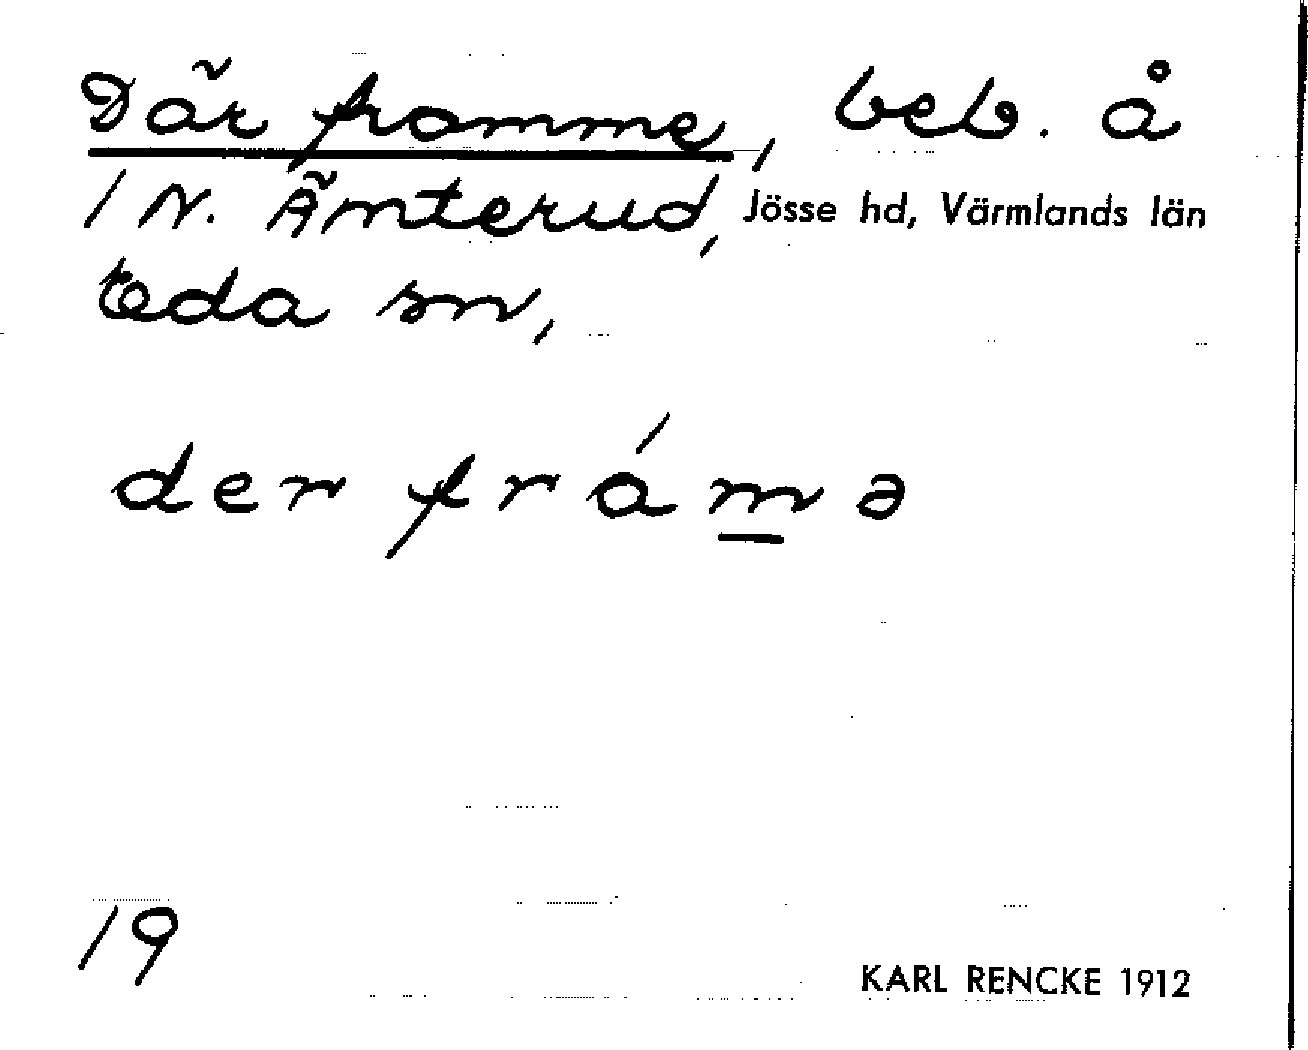 Där framme, beb. å
1 N. Ämterud, Jösse hd, Värmlands län
Eda sn,
der frám̲ə
19
KARL RENCKE 1912